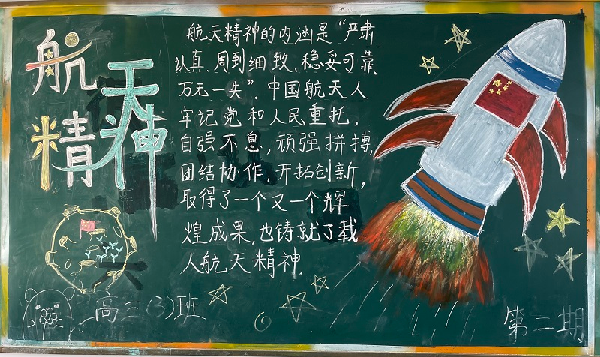 航天
精神
航天精神的内涵是“严肃
认真、周到细致、稳妥可靠、
万无一失”，中国航天人
牢记党和人民重托，
自强不息，顽强拼搏，
团结协作、开拓创新，
取得了一个又一个辉
煌成果，也铸就了载
人航天精神.
高二(3)班
第二期